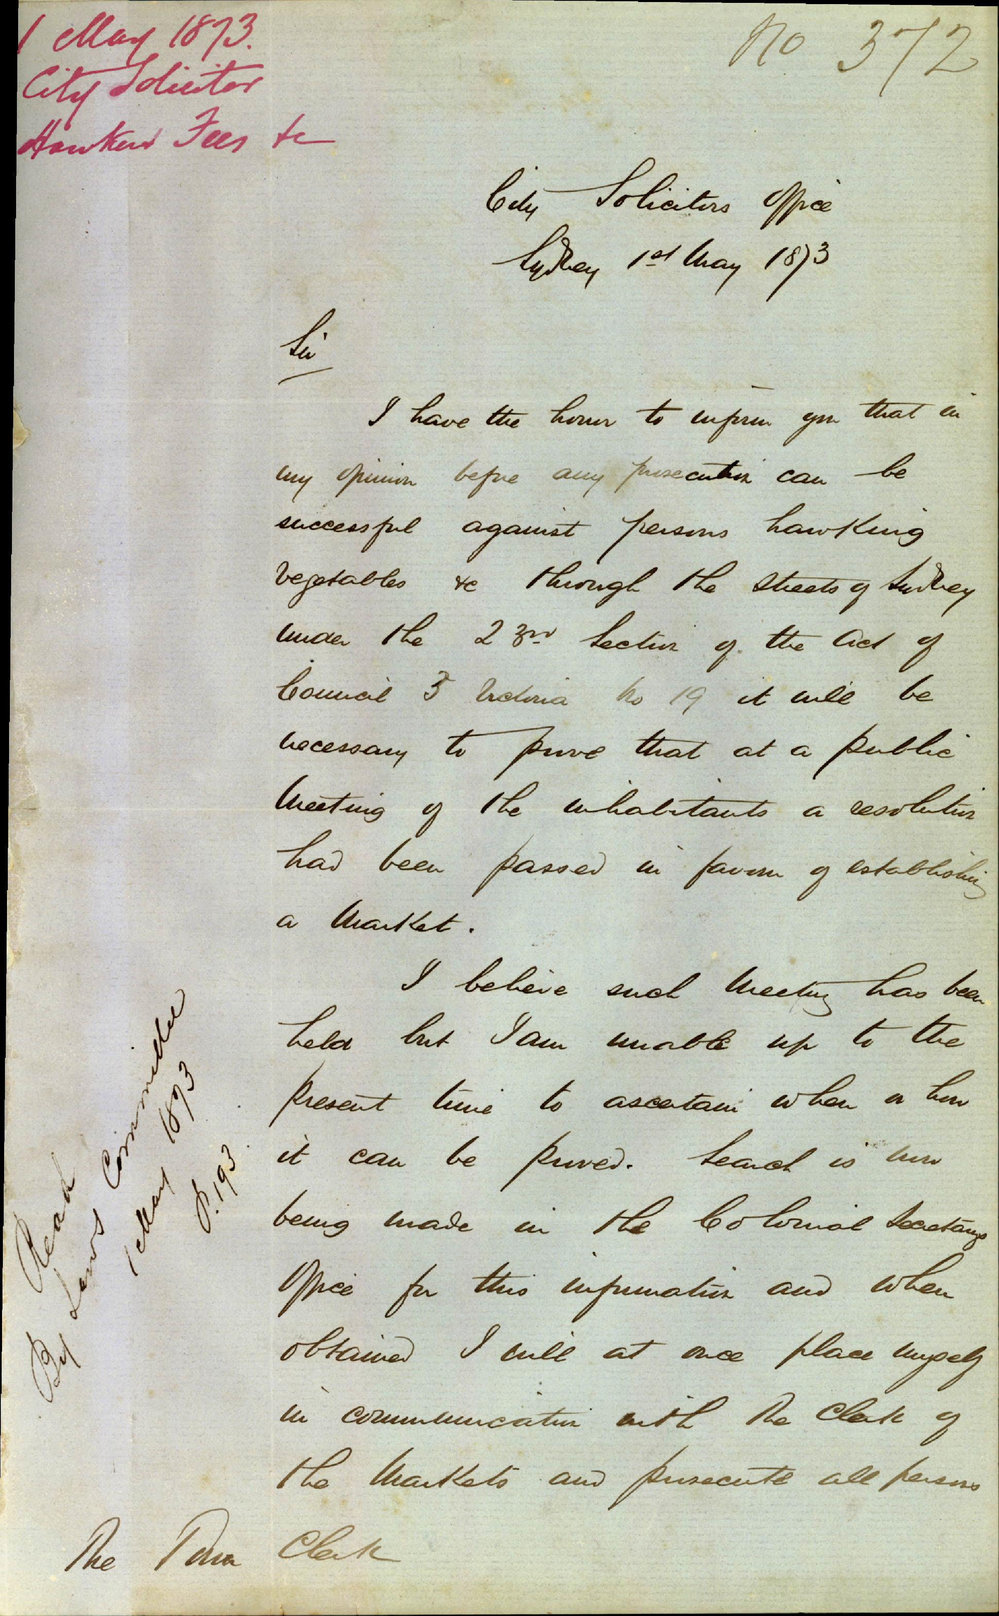 1 May 1873.
City Solicitor
Hawkers Fees &c
No 372
City Solicitors Office
Sydney 1st May 1873
Sir
I have the honor to inform you that in
my opinion before any prosecution can be
successful against persons hawking
vegetables &c through the streets of Sydney
under the 23rd Section of the Act of
Council 3 Victoria No 19 it will be
necessary to prove that at a public
Meeting of the inhabitants a resolution
had been passed in favor of establishing
a Market.
I believe such Meeting has been
held but I am unable up to the
present time to ascertain when or how
it can be proved. Search is now
being made in the Colonial Secretarys
Office for this information and when
obtained I will at once place myself
in communication with the Clerk of
the Markets and prosecute all persons
The Town Clerk
Read
By Laws Committee
1 May 1873
P.193.